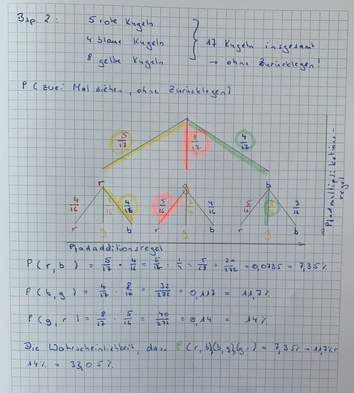 Bsp. 2: 5 rote Kugeln
4 blaue Kugeln
8 gelbe Kugeln
17 Kugeln insgesamt
→ ohne Zurücklegen!
P (zwei Mal ziehen, ohne Zurücklegen)
5/17 8/17 4/17
r g b
4/16 4/16 5/16 4/16 5/16 3/16
r g b r g b r g b
Pfadmultiplikations-
regel
Pfadadditionsregel
P(r, b) = 5/17 · 4/16 = 5/17 · 1/4 = 5/68 = 20/272 = 0,0735 = 7,35%
P(b, g) = 4/17 · 8/16 = 32/272 = 0,117 = 11,7%
P(g, r) = 8/17 · 5/16 = 40/272 = 0,14 = 14%
Die Wahrscheinlichkeit, dass P(r, b)(b, g)(g, r) = 7,35% + 11,7% +
14% = 33,05%